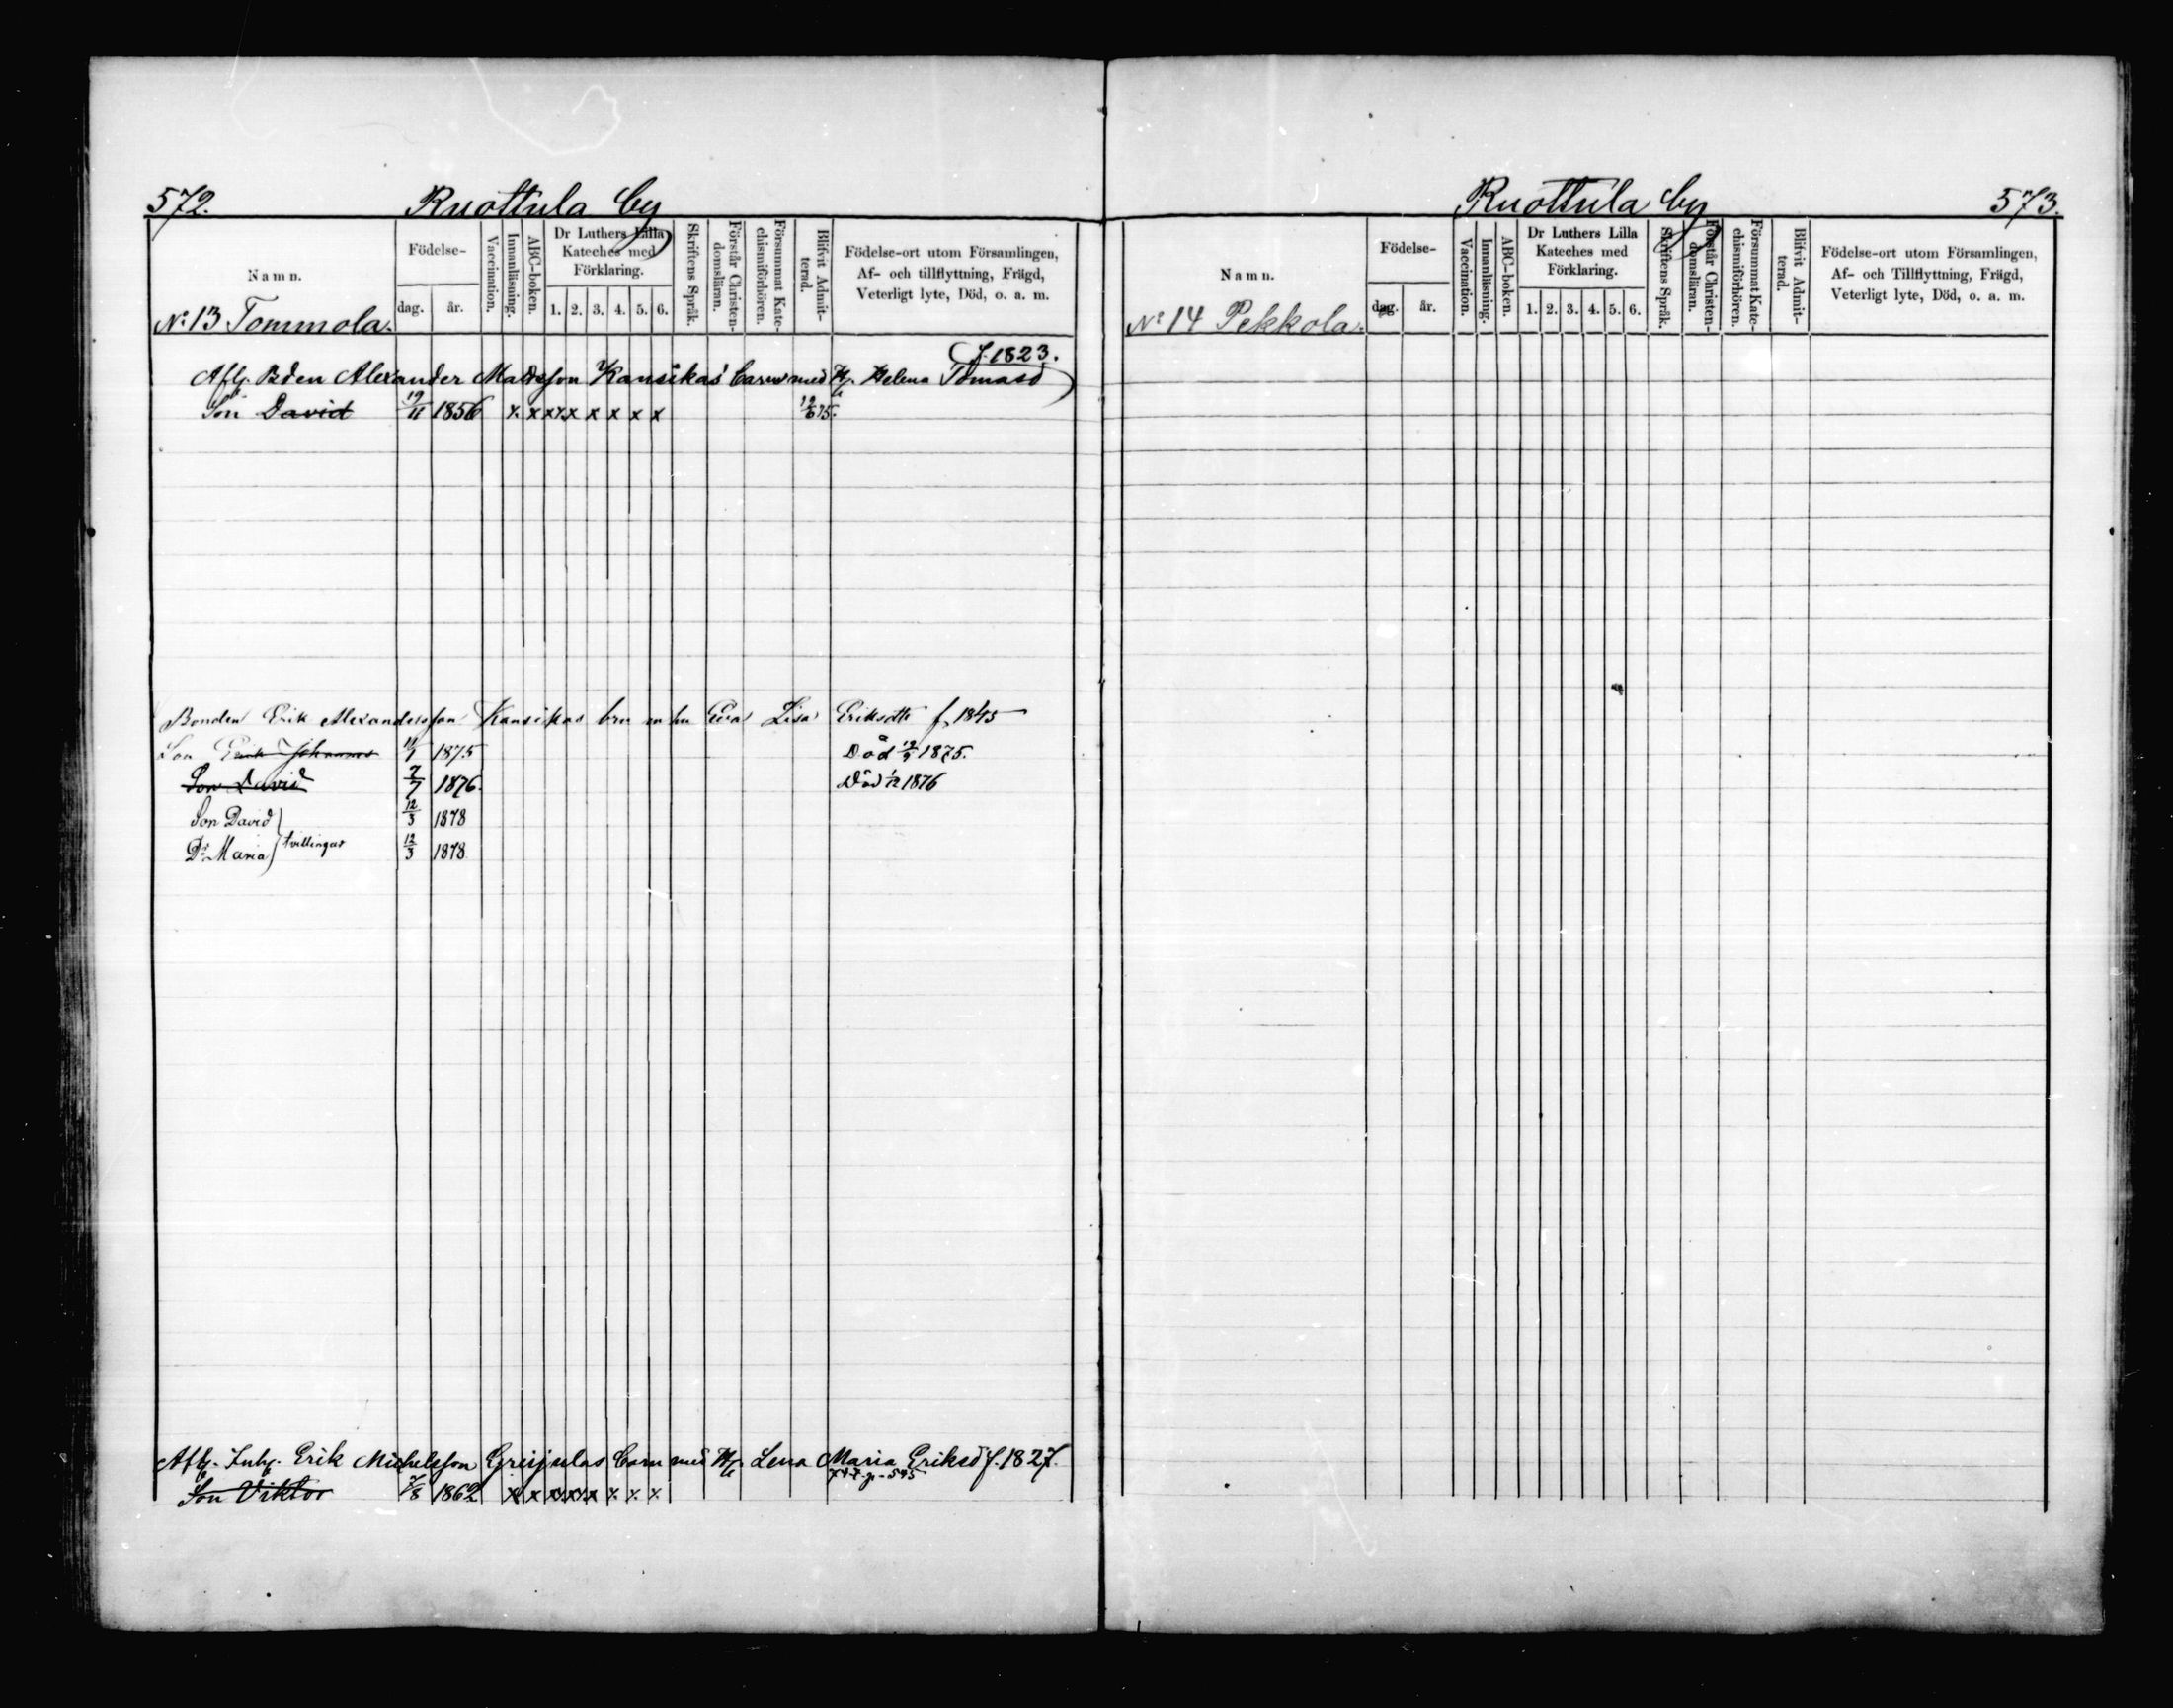 572. Ruottula by
Namn.
Födelse-
dag. år.
Vaccination.
Innanläsning.
ABC-boken.
Dr Luthers Lilla
Kateches med
Förklaring.
1. 2. 3. 4. 5. 6.
Skriftens Språk.
Förstår Christen-
domsläran.
Försummat Kate-
chismiförhören.
Blifvit Admit-
terad.
Födelse-ort utom Församlingen,
Af- och tillflyttning, Frägd,
Veterligt lyte, Död, o. a. m.
No 13 Tommola.
f. 1823.
Bden Alexander Matsson Kansikas barn med Helena Tomasd
Son David 19/11 1856 x x x x x x x x x 75.
Bonden Erik Alexandersson Kansikas brn m hu Eva Lisa Eriksdtt f. 1845
Son Erik Johannes 11/1 1875 Död 12/9 1875.
Son David 7/7 1876. Död 1/12 1876
Son David 12/3 1878
tvillingar
Dr Maria 12/3 1878
Afl. Inh. Erik Michelsson barn med Lena Maria Eriksd f. 1827.
Son Viktor 7/8 1862 x x x x x x x x
Ruottula by 573.
Namn.
Födelse-
dag. år.
Vaccination.
Innanläsning.
ABC-boken.
Dr Luthers Lilla
Kateches med
Förklaring.
1. 2. 3. 4. 5. 6.
Skriftens Språk.
Förstår Christen-
domsläran.
Försummat Kate-
chismiförhören.
Blifvit Admit-
terad.
Födelse-ort utom Församlingen,
Af- och Tillflyttning, Frägd,
Veterligt lyte, Död, o. a. m.
No 14 Pekkola.